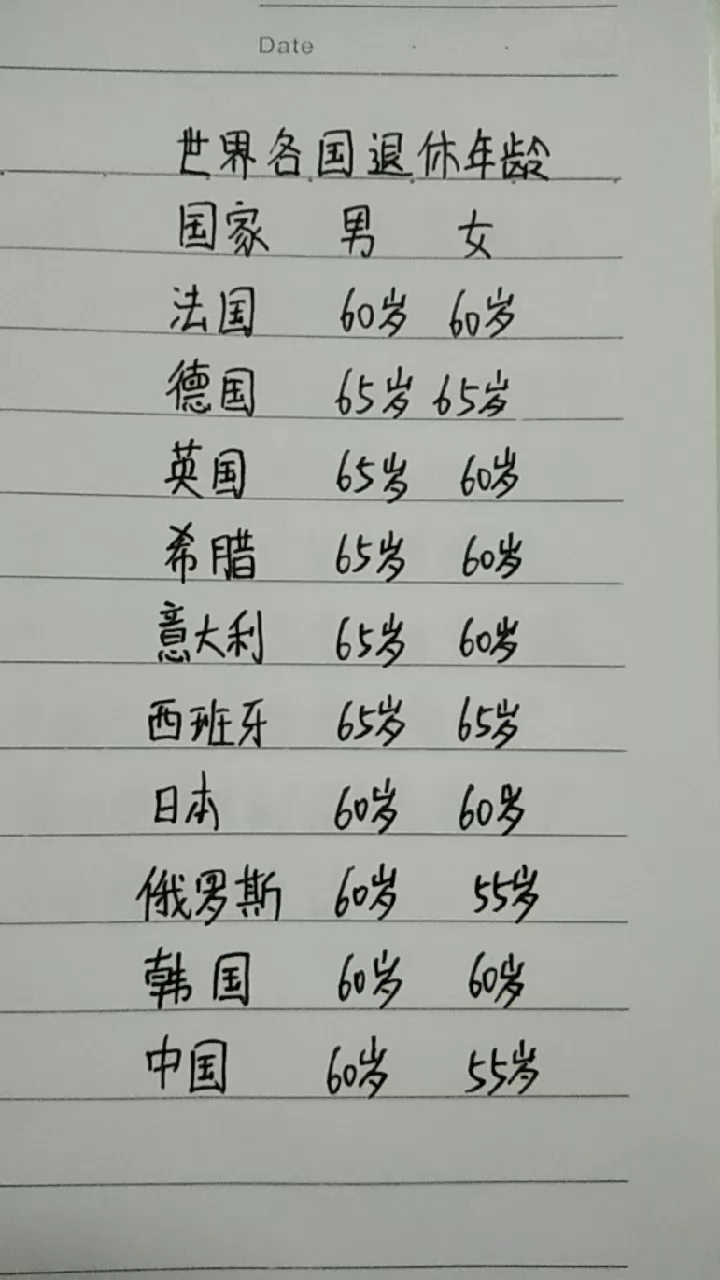 Date
世界各国退休年龄
国家 男 女
法国 60岁 60岁
德国 65岁 65岁
英国 65岁 60岁
希腊 65岁 60岁
意大利 65岁 60岁
西班牙 65岁 65岁
日本 60岁 60岁
俄罗斯 60岁 55岁
韩国 60岁 60岁
中国 60岁 55岁